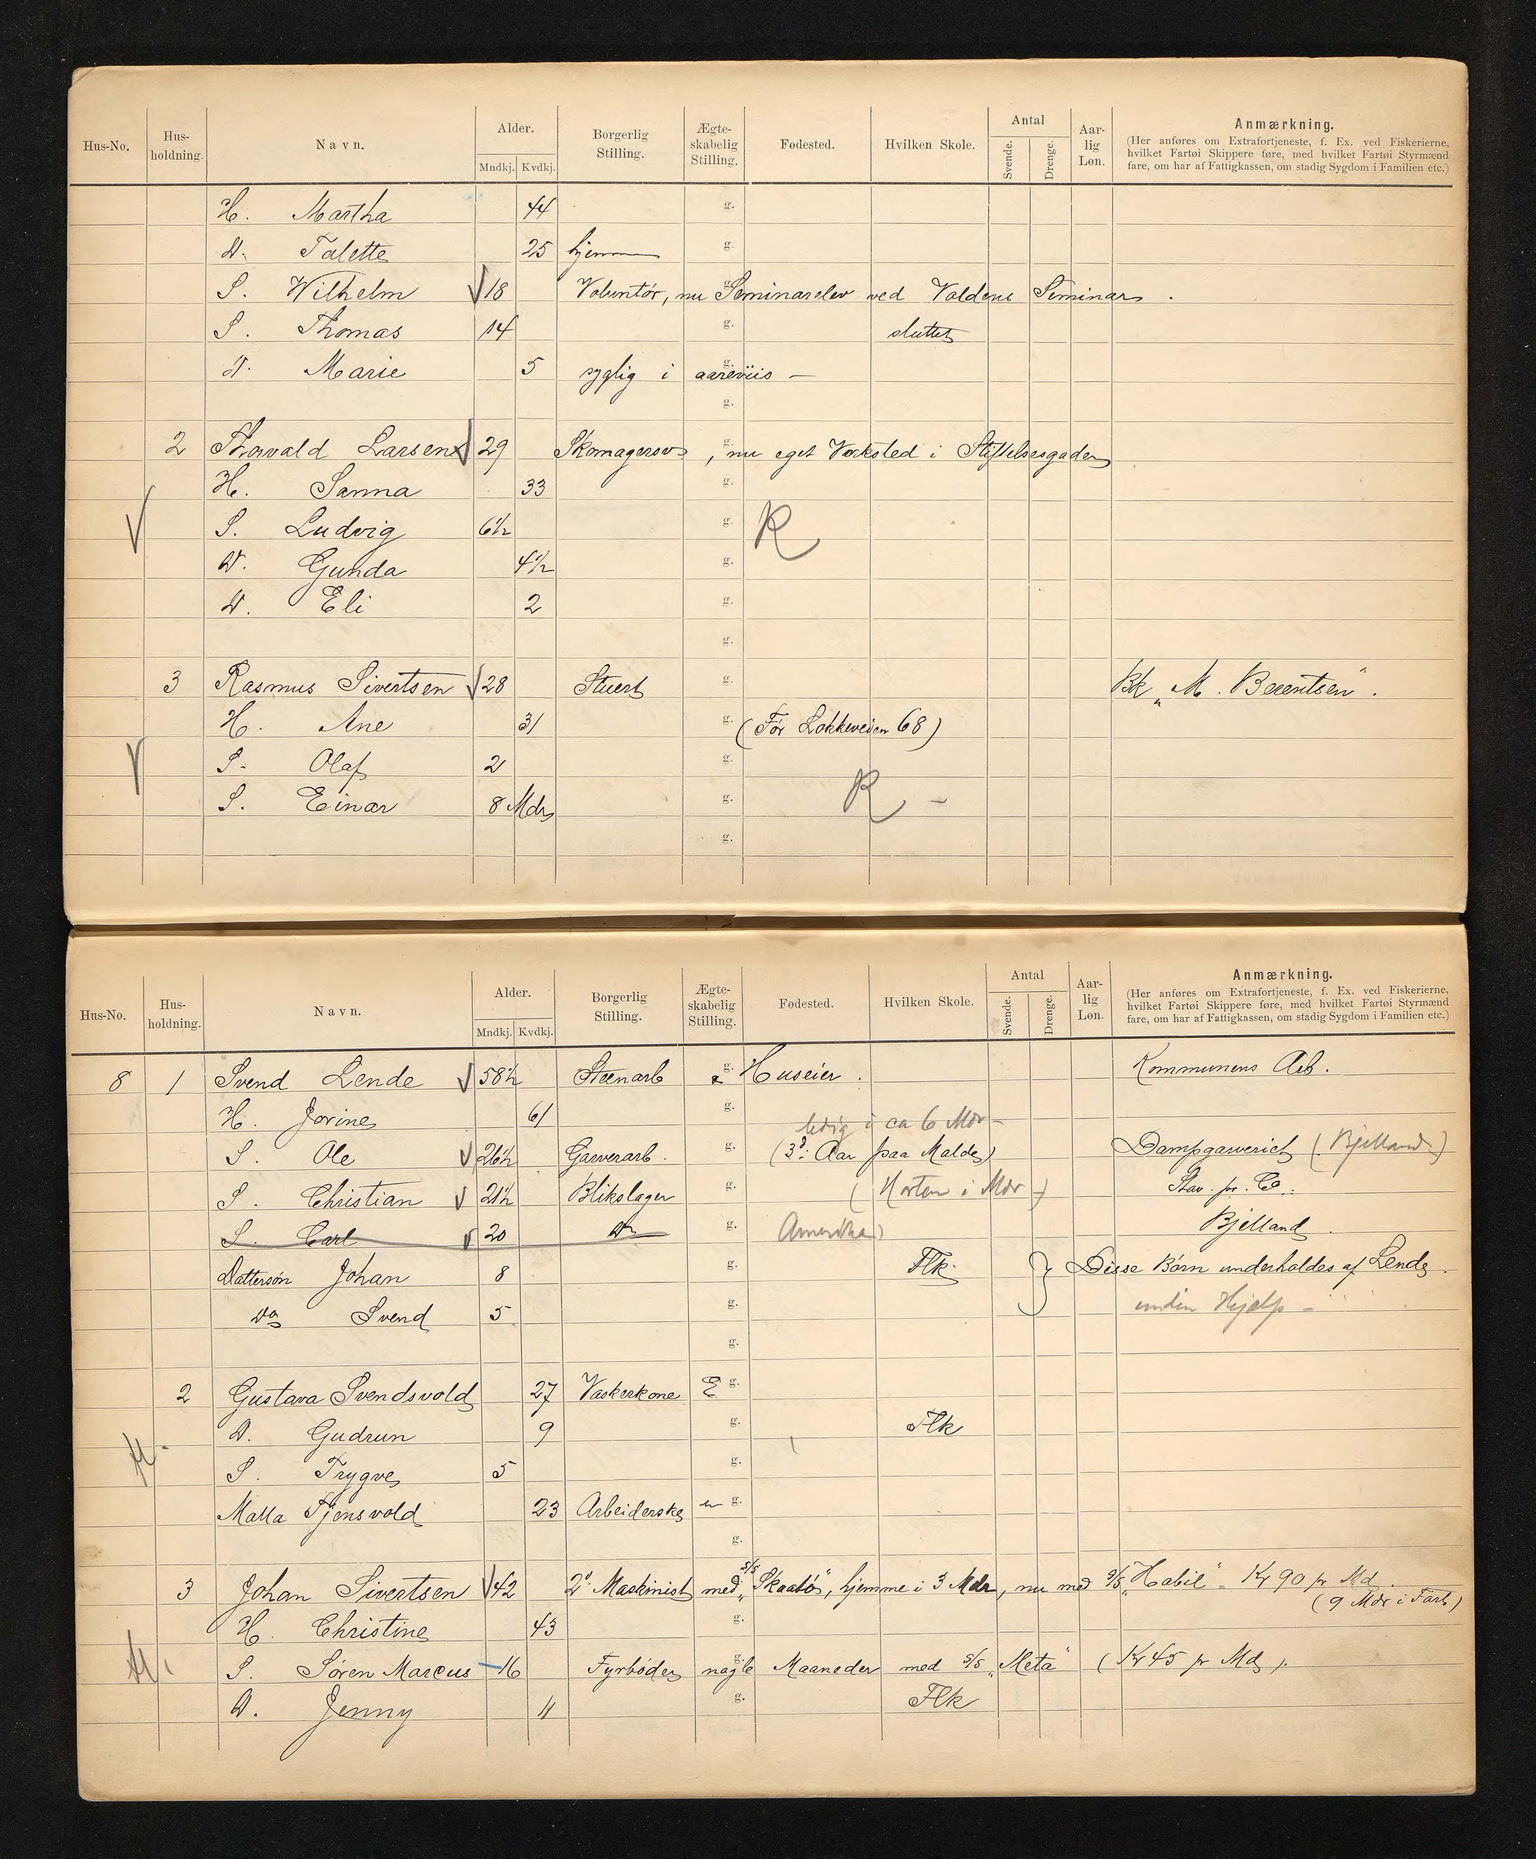 Hus-No. Hus-holdning. Navn. Alder. Mndkj. Kvdkj. Borgerlig Stilling. Ægte-skabelig Stilling. Fødested. Hvilken Skole. Antal Svende. Drenge. Aar-lig Løn. Anmærkning.
(Her anføres om Extrafortjeneste, f. Ex. ved Fiskerierne,
hvilket Fartøi Skippere føre, med hvilket Fartøi Styrmænd
fare, om har af Fattigkassen, om stadig Sygdom i Familien etc.)
H. Martha 44 g.
D. Talette 25 hjemme g.
S. Wilhelm 18 Voluntør, nu Seminarelev ved Voldens Seminar. g.
S. Thomas 14 g. sluttet
D. Marie 5 syglig i aareviis — g.
g.
2 Thorvald Larsen 29 Skomagersv, nu eget Verksted i Stiftelsesgaden g.
H. Sanna 33 g.
S. Ludvig 6½ g. R
D. Gunda 4½ g.
D. Eli 2 g.
g.
3 Rasmus Sivertsen 28 Stuert g. Bk „M. Berentsen".
H. Ane 31 g. (Før Løkkeveien 68)
S. Olaf 2 g.
S. Einar 8 Mdr g. R —
g.
Hus-No. Hus-holdning. Navn. Alder. Mndkj. Kvdkj. Borgerlig Stilling. Ægte-skabelig Stilling. Fødested. Hvilken Skole. Antal Svende. Drenge. Aar-lig Løn. Anmærkning.
(Her anføres om Extrafortjeneste, f. Ex. ved Fiskerierne,
hvilket Fartøi Skippere føre, med hvilket Fartøi Styrmænd
fare, om har af Fattigkassen, om stadig Sygdom i Familien etc.)
8 1 Svend Lende 58½ Steenarb g. Huseier. Kommunens Arb.
H. Jorine 61 g. ledig i ca 6 Mdr —
S. Ole 26½ Garverarb. g. (3die Aar paa Malde) Dampgarveriet (Bjelland)
S. Christian 21½ Blikslager g. (Horten i Mdr) Stav. pr. Co.
S. Carl 20 Do g. Amerika) Bjelland.
Dattersøn Johan 8 g. Flk. } Disse Børn underholdes af Lende.
Do Svend 5 g. uden Hjælp —
g.
2 Gustava Svendsvold 27 Vaskerkone E g.
D. Gudrun 9 g. Flk
S. Trygve 5 g.
Malla Tjensvold 23 Arbeiderske u g.
g.
3 Johan Sivertsen 42 2d Maskinist med S/S „Skaatø", hjemme i 3 Mdr, nu med S/S „Habil" Kr 90 pr Md.
(9 Mdr i Fart)
H. Christine 43 g.
S. Søren Marcus 16 Fyrbøder nogle Maaneder med S/S „Meta" (Kr 45 pr Md). g.
D. Jenny 11 g. Flk